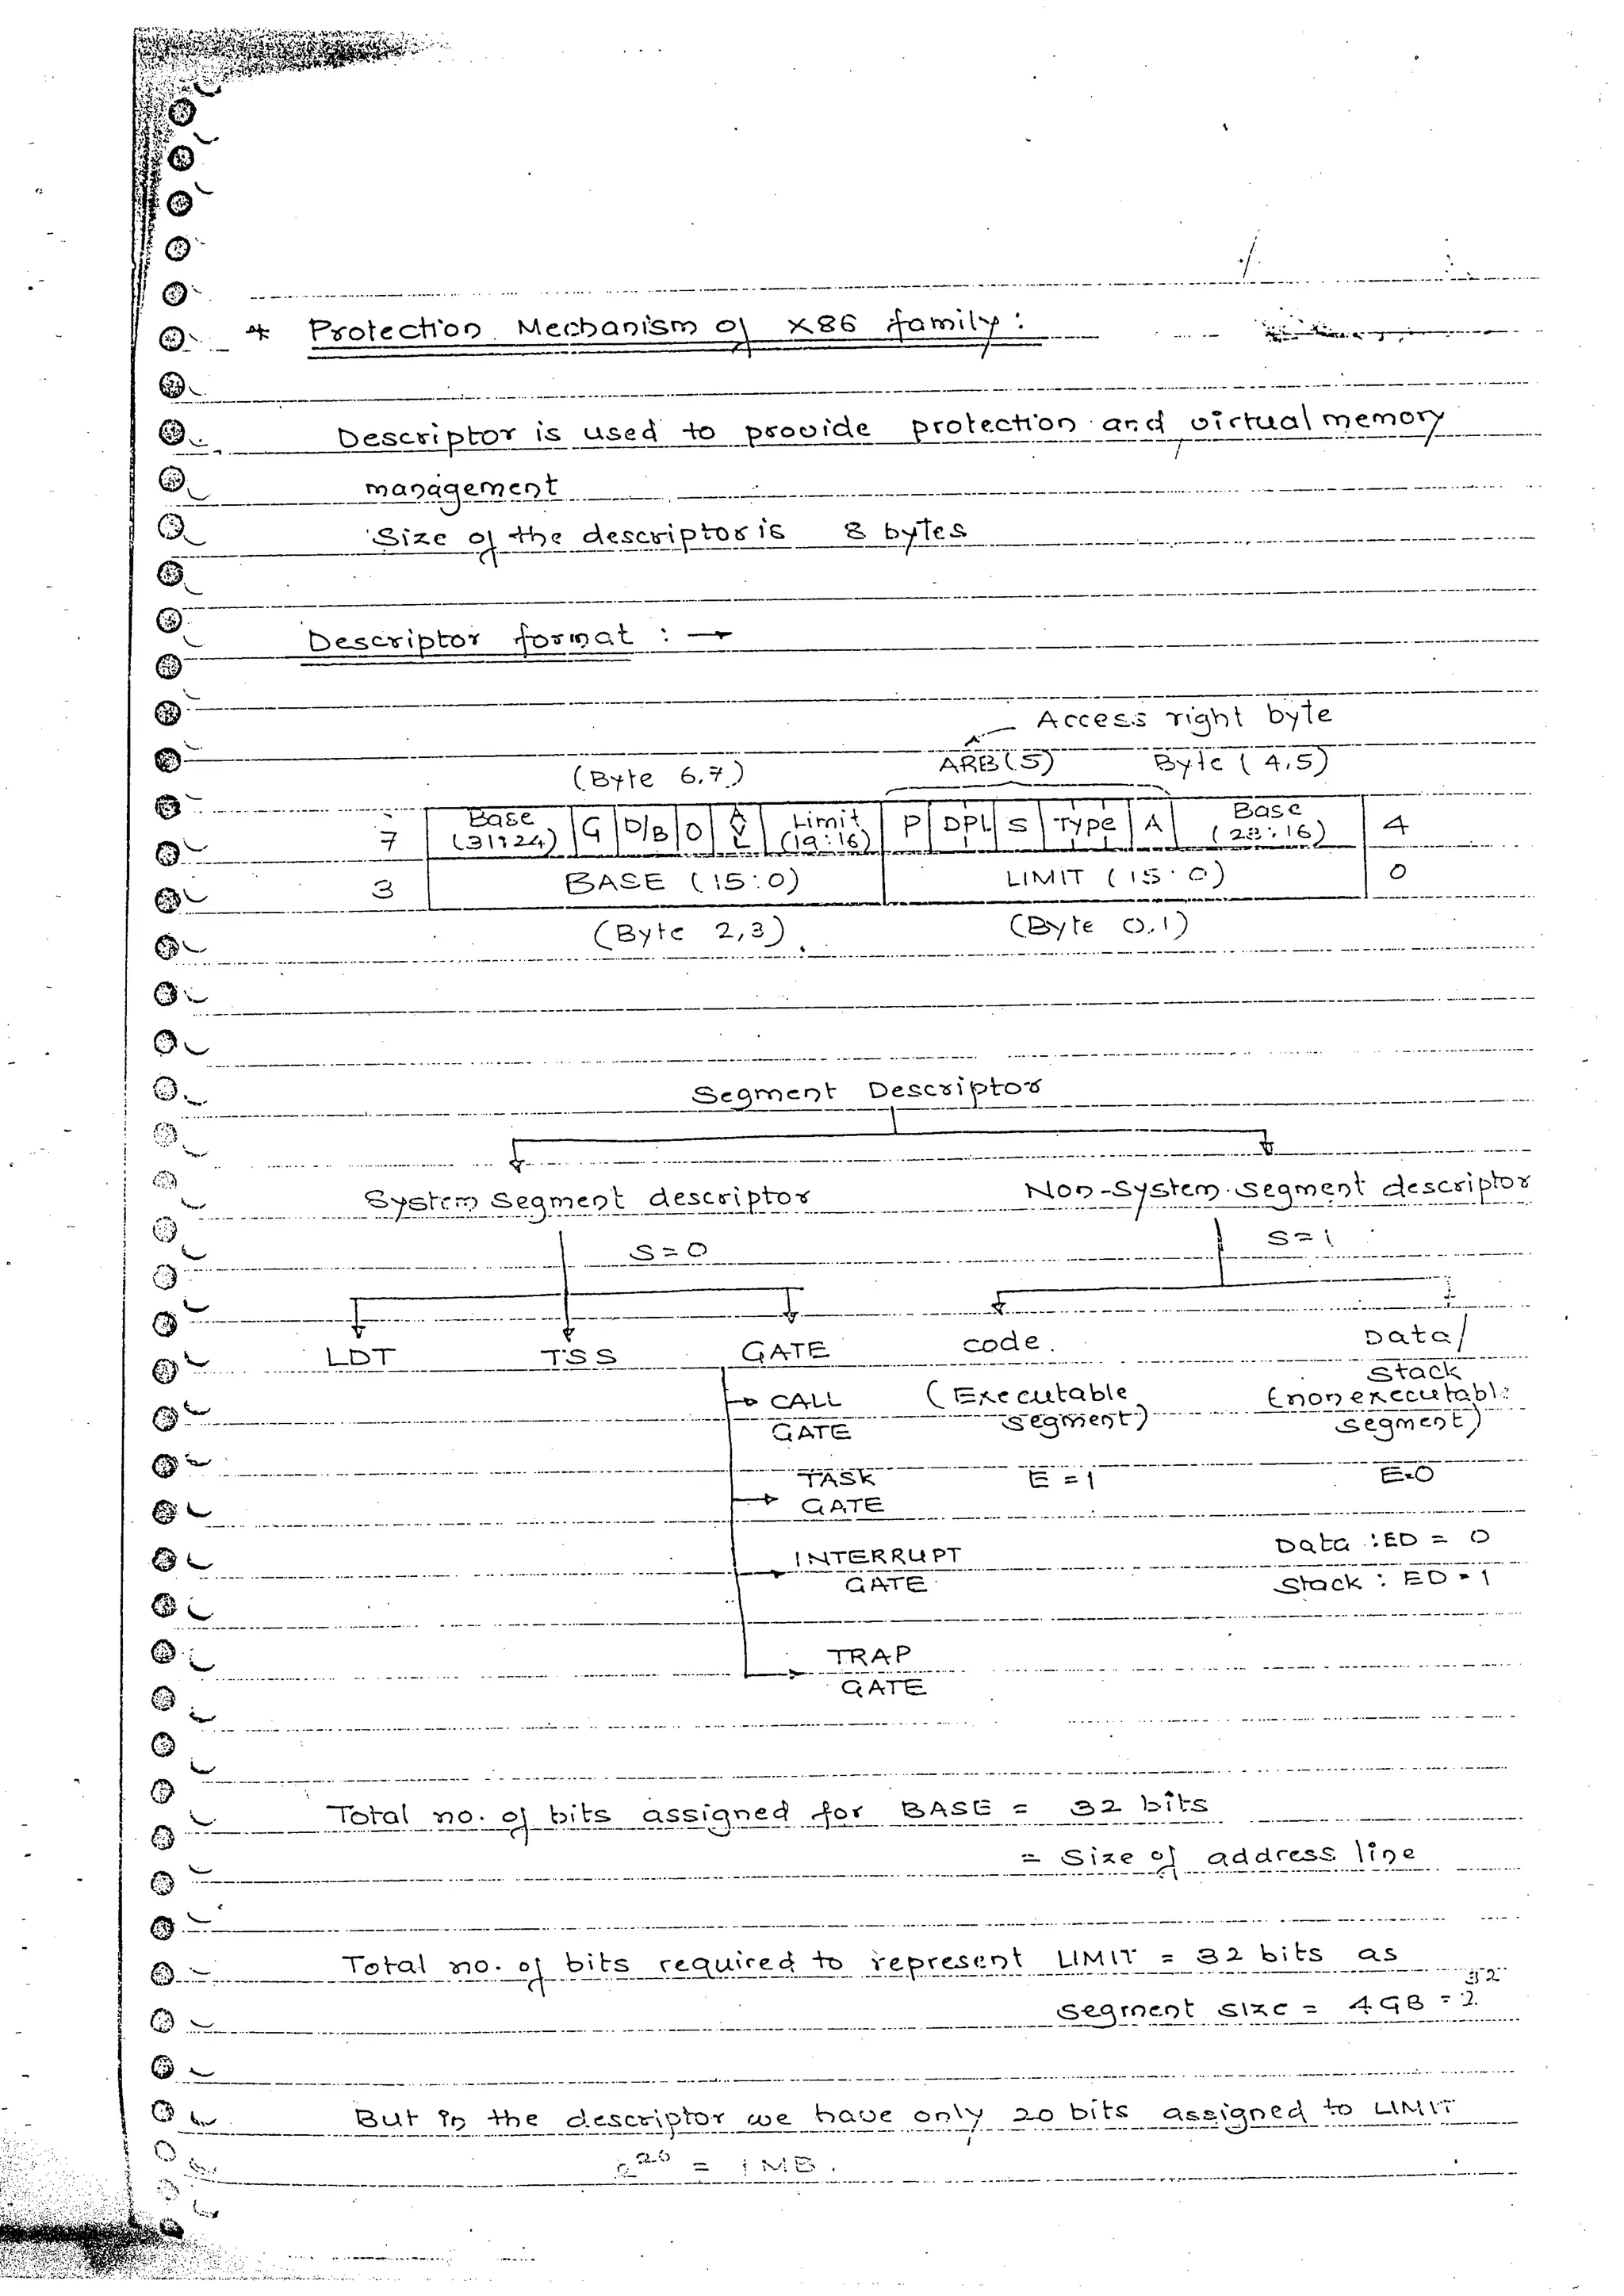 * Protection Mechanism of X86 family :
Descriptor is used to provide protection and virtual memory
management
Size of the descriptor is 8 bytes
Descriptor format : →
Access right byte
(Byte 6,7) ARB(5) Byte (4,5)
7 Base (31:24) G D/B O AVL Limit (19:16) P DPL S Type A Base (23:16) 4
3 BASE (15:0) LIMIT (15:0) 0
(Byte 2,3) (Byte 0,1)
Segment Descriptor
System Segment descriptor Non-System segment descriptor
S=0 S=1
LDT TSS GATE code. Data/
Stack
CALL (Executable (non executable
GATE segment) segment)
TASK E = 1 E=0
GATE
INTERRUPT Data : ED = 0
GATE Stack : ED = 1
TRAP
GATE
Total no. of bits assigned for BASE = 32 bits
= Size of address line
Total no. of bits required to represent LIMIT = 32 bits as
segment size = 4GB = 2³²
But in the descriptor we have only 20 bits assigned to LIMIT
2²⁰ = 1 MB.